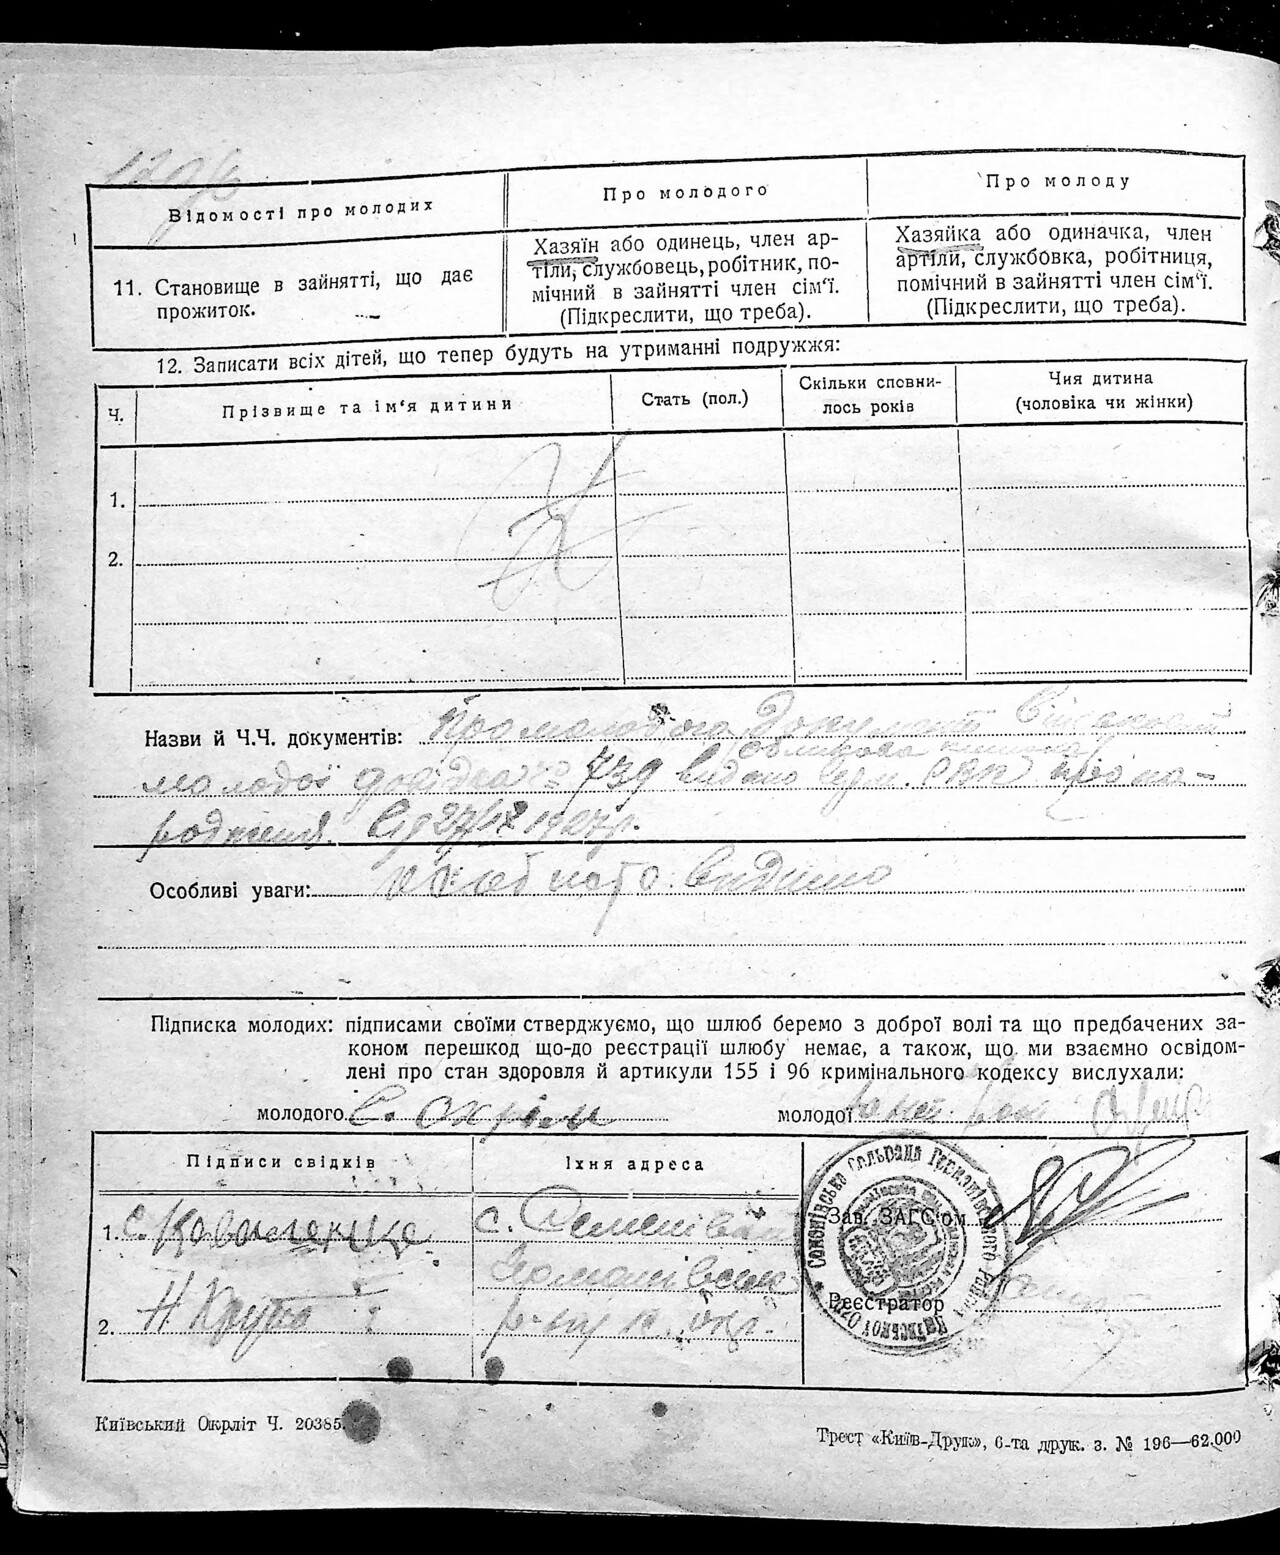 Відомості про молодих
Про молодого
Про молоду
11. Становище в зайнятті, що дає
прожиток.
Хазяїн або одинець, член ар-
тіли, службовець, робітник, по-
мічний в зайнятті член сім'ї.
(Підкреслити, що треба).
Хазяйка або одиначка, член
артіли, службовка, робітниця,
помічний в зайнятті член сім'ї.
(Підкреслити, що треба).
12. Записати всіх дітей, що тепер будуть на утриманні подружжя:
Ч.
Прізвище та ім'я дитини
Стать (пол.)
Скільки сповни-
лось років
Чия дитина
(чоловіка чи жінки)
1.
2.
Назви й Ч.Ч. документів: Про молодого Документ
облікова книжка
молодої довідка 739 видано про на-
родження. 27/IX 1927 р.
Особливі уваги: видано
Підписка молодих: підписами своїми стверджуємо, що шлюб беремо з доброї волі та що предбачених за-
коном перешкод що-до реєстрації шлюбу немає, а також, що ми взаємно освідом-
лені про стан здоровля й артикули 155 і 96 кримінального кодексу вислухали:
молодого С. Охрім
молодої
Підписи свідків
Їхня адреса
1. с. Коваленко
с.
2. Н
р-ну К. окр.
Зав. ЗАГС'ом
Реєстратор
Київський Окрліт Ч. 20385.
Трест «Київ-Друк», 6-та друк. з. № 196—62.000